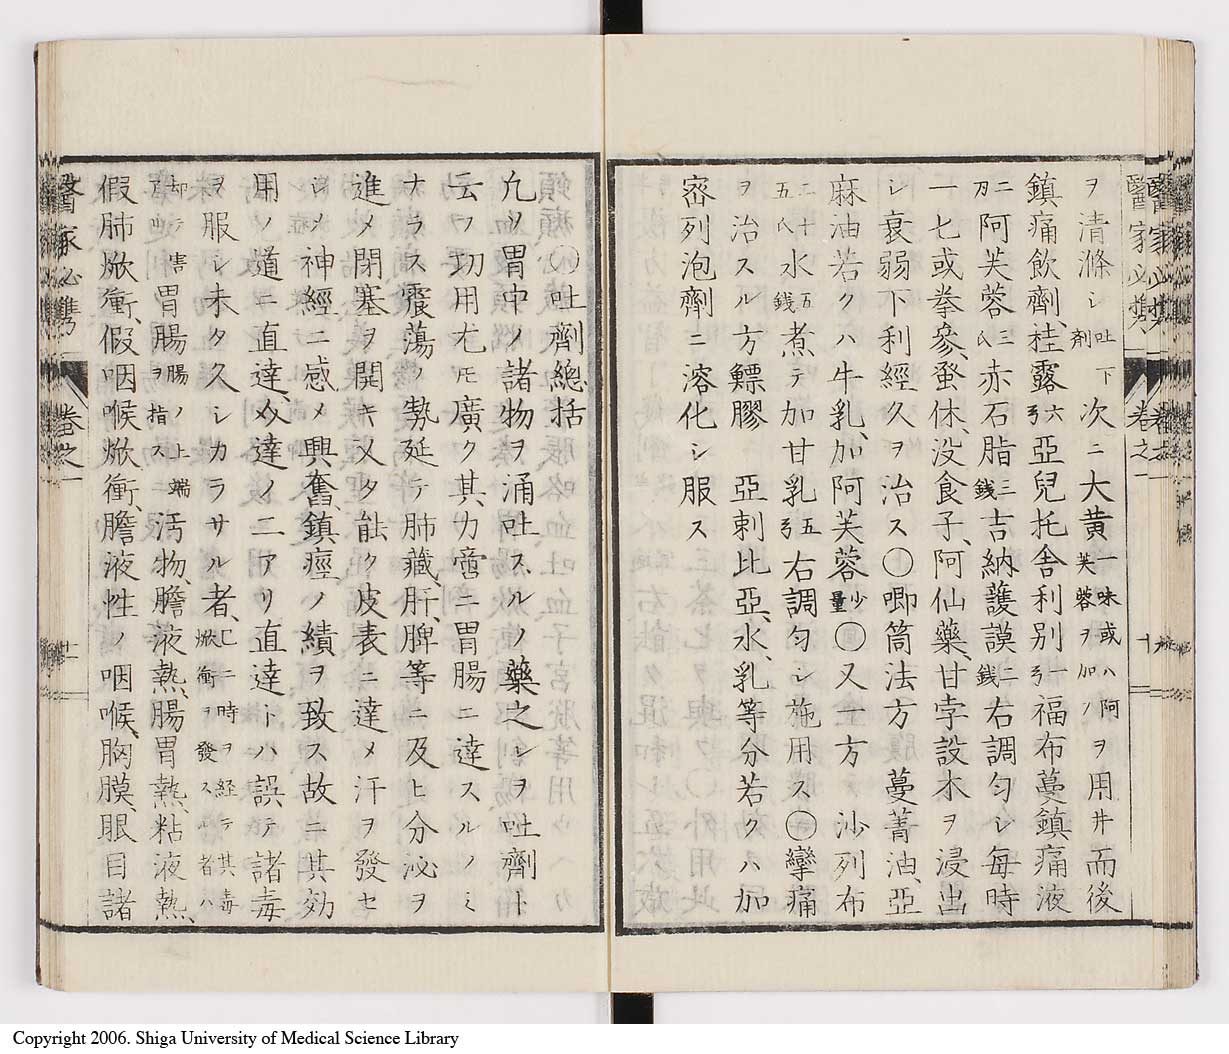 ヲ清滌シ吐下剤次ニ大黄一味或ハ阿芙蓉ヲ加ノヲ用井而後
鎮痛飲劑、桂露六弓亞兒托舎利別一弓福布蔓鎮痛液
二刃阿芙蓉三八赤石脂三銭吉納護謨二銭右調匀シ毎時
一七或拳參、蚤休、没食子、阿仙藥、甘孛設木ヲ浸出
シ衰弱下利經久ヲ治ス〇唧筒法方蔓菁油、亞
麻油若クハ牛乳、加阿芙蓉少量〇又一方沙列布
二十五八水五銭煮テ加甘乳五弓右調匀シ施用ス〇攣痛
ヲ治スル方鰾膠亞剌比亞、水、乳等分若クハ加
密列泡劑ニ溶化シ服ス
醫家必攜
卷之一
十
吐劑總括
凡ソ胃中ノ諸物ヲ涌吐スルノ藥之シヲ吐劑ト
云フ功用尤モ廣ク其力啻ニ胃腸ニ達スルノミ
ナラス震蕩ノ勢延テ肺藏、肝、脾等ニ及ヒ分泌ヲ
進メ閉塞ヲ開キ又タ能ク皮表ニ達メ汗ヲ發セ
シメ神經ニ感メ興奮鎮痙ノ績ヲ致ス故ニ其効
用ノ道ニ直達、交達ノ二アリ直達トハ誤テ諸毒
ヲ服シ未タ久シカラサル者、已ニ時ヲ経テ其毒焮衝ヲ發スル者ハ
却テ害アリ胃腸腸ノ上端ヲ指ス汚物、膽液熱、腸胃熱、粘液熱、
假肺焮衝、假咽喉焮衝、膽液性ノ咽喉、胸膜、眼目諸
醫家必攜
卷之一
十一
Copyright 2006. Shiga University of Medical Science Library